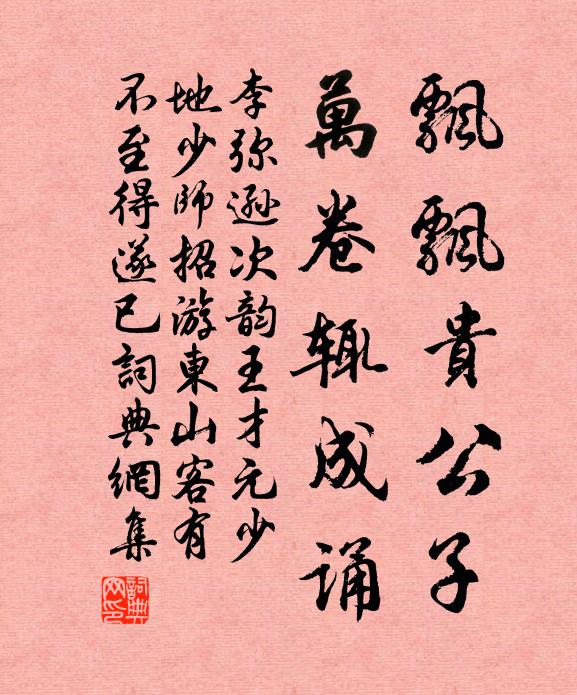 飄飄貴公子
萬卷辄成诵
李弥遜次韵王才元少
地少師招游東山客有
不至得遂已詞典網集
詞典网印